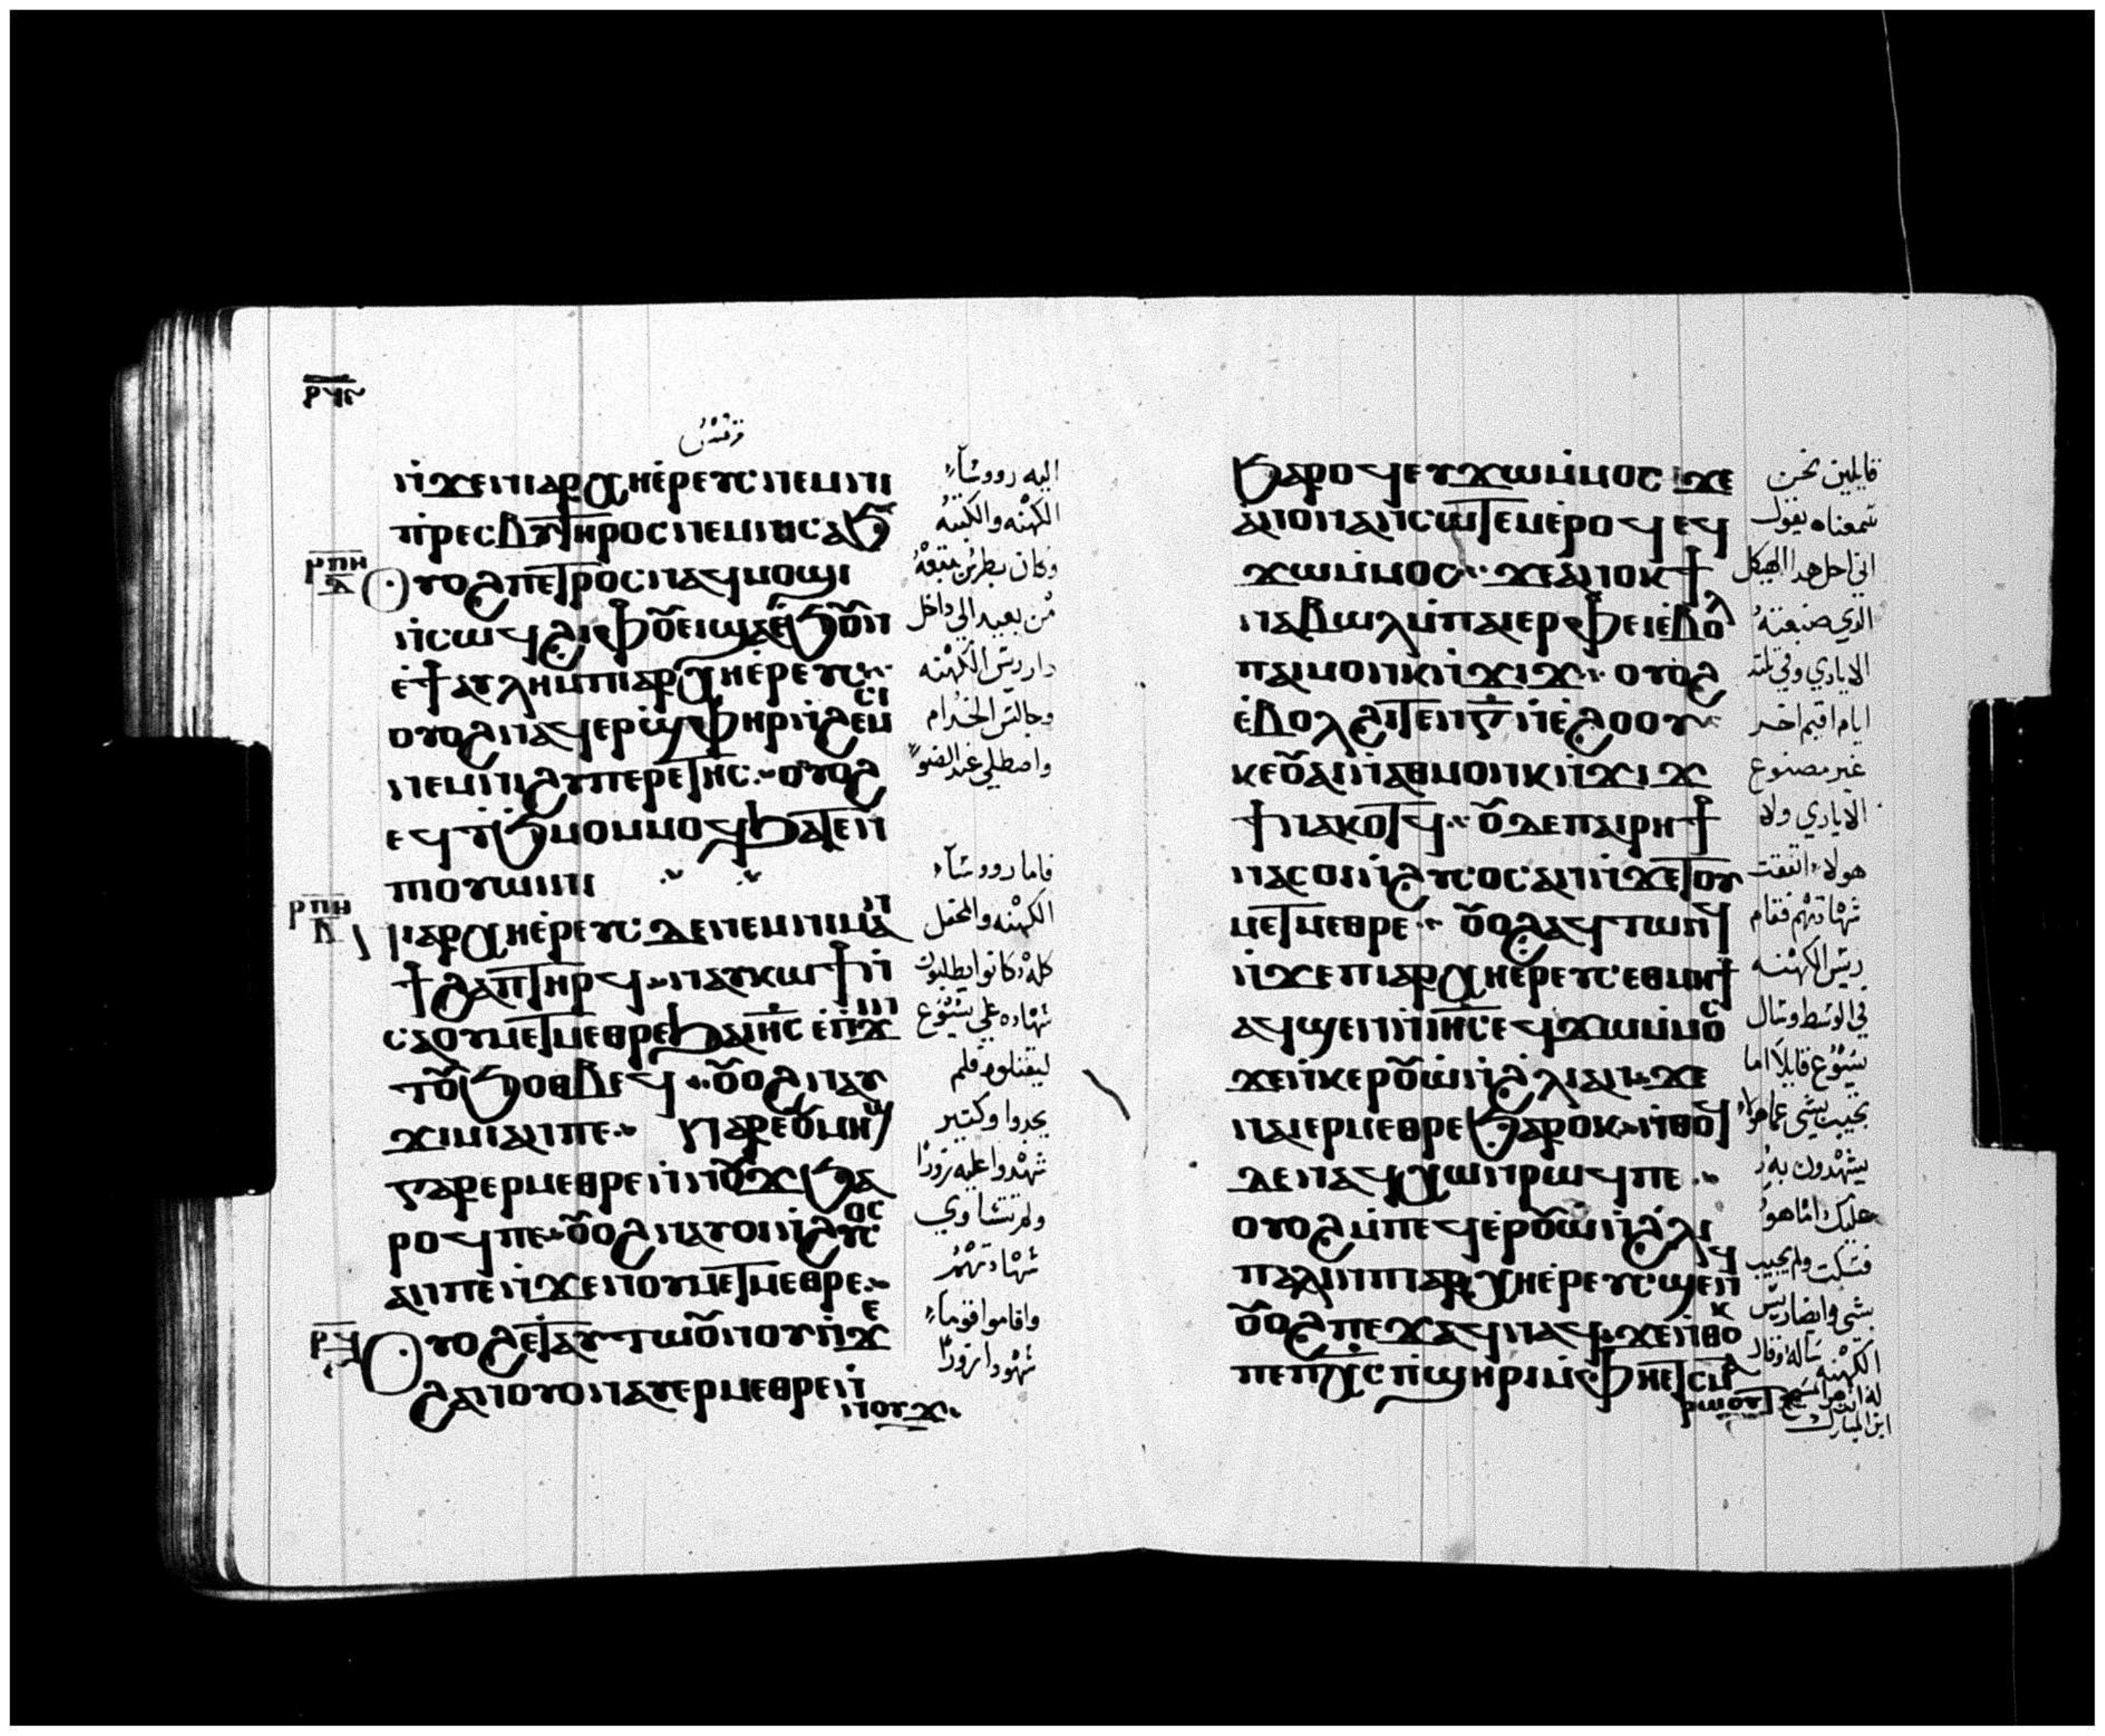 ⲣϥⲋ
ⲛ̇ϫⲉⲛⲓⲁⲣⲭⲏⲉ̇ⲣⲉⲩⲥ ⲛⲉⲙⲛⲓ
ⲡ̇ⲣⲉⲥⲃⲩⲧⲏⲣⲟⲥ ⲛⲉⲙⲛⲓⲥⲁϧ
ⲣⲡⲏ
ⲁ
Ⲟⲩⲟϩ ⲡⲉⲧⲣⲟⲥ ⲛⲁϥⲙⲟϣⲓ
ⲛ̇ⲥⲱϥ ϩⲓⲫⲟⲩⲉⲓ ϣⲁⲉ̇ϧⲟⲩⲛ
ⲉ̇ϯⲁⲩⲗⲏ ⲙ̇ⲡⲓⲁⲣⲭⲏⲉ̇ⲣⲉⲩⲥ
ⲟⲩⲟϩ ⲛⲁϥⲉⲣϣⲫⲏⲣ ⲛ̇ϩⲉⲙⲥⲓ
ⲛⲉⲙⲛⲓϩⲩⲡⲉⲣⲉⲧⲏⲥ ⲟⲩⲟϩ
ⲉϥⲧ̇ϧⲙⲟⲙ ⲙⲟϥ ϧⲁⲧⲉⲛ
ⲡⲓⲟⲩⲱⲓⲛⲓ
ⲣⲡⲏ
ⲃ
ⲛⲓⲁⲣⲭⲏⲉ̇ⲣⲉⲩⲥ ⲇⲉ ⲛⲉⲙⲡⲓⲙⲁⲛ
ϯϩⲁⲡ ⲧⲏⲣϥ ⲛⲁⲩⲕⲱϯ ⲛ̇
ⲥⲁⲟⲩⲙⲉⲧⲙⲉⲑⲣⲉ ϧⲁⲓⲏⲥ ⲉ̇ⲡϫⲓⲛ
ⲧⲟⲩϧⲟⲑⲃⲉϥ ⲟⲩⲟϩ ⲛⲁⲩ
ϫⲓⲙⲓ ⲁⲛⲡⲉ ⲛⲁⲣⲉⲟⲩⲙⲏϣ
ⲅⲁⲣ ⲉⲣⲙⲉⲑⲣⲉ ⲛ̇ⲛⲟⲩϫ ϧⲁ
ⲣⲟϥⲡⲉ ⲟⲩⲟϩ ⲛⲁⲩⲟⲛⲓ ⲛ̇ϩⲩⲥⲟⲥ
ⲁⲛⲡⲉ ⲛ̇ϫⲉⲛⲟⲩⲙⲉⲧⲙⲉⲑⲣⲉ
ⲣϥ
Ⲟⲩⲟϩ ⲉⲧⲁⲩⲧⲱⲟⲩⲛⲟⲩ ⲛ̇ϫⲉ
ϩⲁⲛⲟⲩⲟⲛ ⲁⲩⲉⲣⲙⲉⲑⲣⲉ ⲛ̇
ⲛⲟⲩϫ
اليه رووسآء
الكهنه والكتبه
وكان بطرس يتبعه
من بعيد الي داخل
دار رييس الكهنه
وجالس الخدام
واصطلي عند الضو
فاما رووسآء
الكهنه والمحفل
كله كانوا يطلبون
شهاده علي يسوع
ليقتلوه فلم
يجدوا وكتير
شهدوا عليه زورا
ولم تتساوي
شهادتهم
واقاموا قوما
شهودا زورا
ϧⲁⲣⲟϥ ⲉⲩϫⲱ ⲙ̇ⲙⲟⲥ ϫⲉ
ⲁⲛⲟⲛ ⲁⲛⲥⲱⲧⲉⲙ ⲉ̇ⲣⲟϥ ⲉϥ
ϫⲱ ⲙ̇ⲙⲟⲥ ϫⲉ ⲁⲛⲟⲕ ϯ
ⲛⲁⲃⲱⲗ ⲙ̇ⲡⲁⲓⲉⲣⲫⲉⲓ ⲉ̇ⲃⲟⲗ
ⲡⲁⲓⲙⲟⲩⲛⲕ ⲛ̇ϫⲓϫ ⲟⲩⲟϩ
ⲉ̇ⲃⲟⲗ ϩⲓⲧⲉⲛ ⲅ̅ ⲛ̇ⲉ̇ϩⲟⲟⲩ
ⲕⲉⲟⲩⲁⲓ ⲛ̇ⲁⲑⲙⲟⲩⲛⲕ ⲛ̇ϫⲓϫ
ϯⲛⲁⲕⲟⲧϥ ⲟⲩⲇⲉ ⲡⲁⲓⲣⲏϯ
ⲛⲁⲥⲟⲛⲓ ⲛ̇ϩⲩⲥⲟⲥ ⲁⲛ ⲛ̇ϫⲉⲧⲟⲩ
ⲙⲉⲧⲙⲉⲑⲣⲉ ⲟⲩⲟϩ ⲁϥⲧⲱⲛϥ
ⲛ̇ϫⲉⲡⲓⲁⲣⲭⲏⲉ̇ⲣⲉⲩⲥ ⲉⲑⲙⲏϯ
ⲁϥϣⲉⲛ ⲓⲏⲥ ⲉϥϫⲱ ⲙ̇ⲙⲟⲥ
ϫⲉ ⲛ̇ⲕⲉⲣⲟⲩⲱ̇ ⲛ̇ϩⲗⲓ ⲁⲛ ϫⲉ
ⲛⲁⲓ ⲉⲣⲙⲉⲑⲣⲉ ϧⲁⲣⲟⲕ ⲛ̇ⲑⲟϥ
ⲇⲉ ⲛⲁϥⲭⲱ ⲛ̇ⲣⲱϥⲡⲉ
ⲟⲩⲟϩ ⲙ̇ⲡⲉϥⲉ̇ⲣⲟⲩⲱ̇ ⲛ̇ϩ̇ⲗⲓ
ⲡⲁⲗⲓⲛ ⲡⲓⲁⲣⲭⲏⲉ̇ⲣⲉⲩⲥ ϣⲉⲛϥ
ⲟⲩⲟϩ ⲡⲉϫⲁϥ ⲛⲁϥ ϫⲉ ⲛ̇ⲑⲟⲕ
ⲡⲉ ⲡⲭⲥ ⲡ̇ϣⲏⲣⲓ ⲙ̇ⲫⲏⲉⲧⲥⲙⲁ
ⲣⲱⲟⲩⲧ
قايلين نحن
سمعناه يقول
اني احل هدا الهيكل
الدي صنعته
الايادي وفي تلتة
ايام اقيم اخر
غير مصنوع
الايادي ولا
هولاء اتفقت
شهادتهم فقام
رييس الكهنه
في الوسط وسال
يسوع قايلا اما
تجيب بشي عما هولاء
يشهدون به
عليك اما هو
فسكت ولم يجيب
بشي وايضا رييس
الكهنه ساله وقال
له انت هو المسيح
ابن المبارك